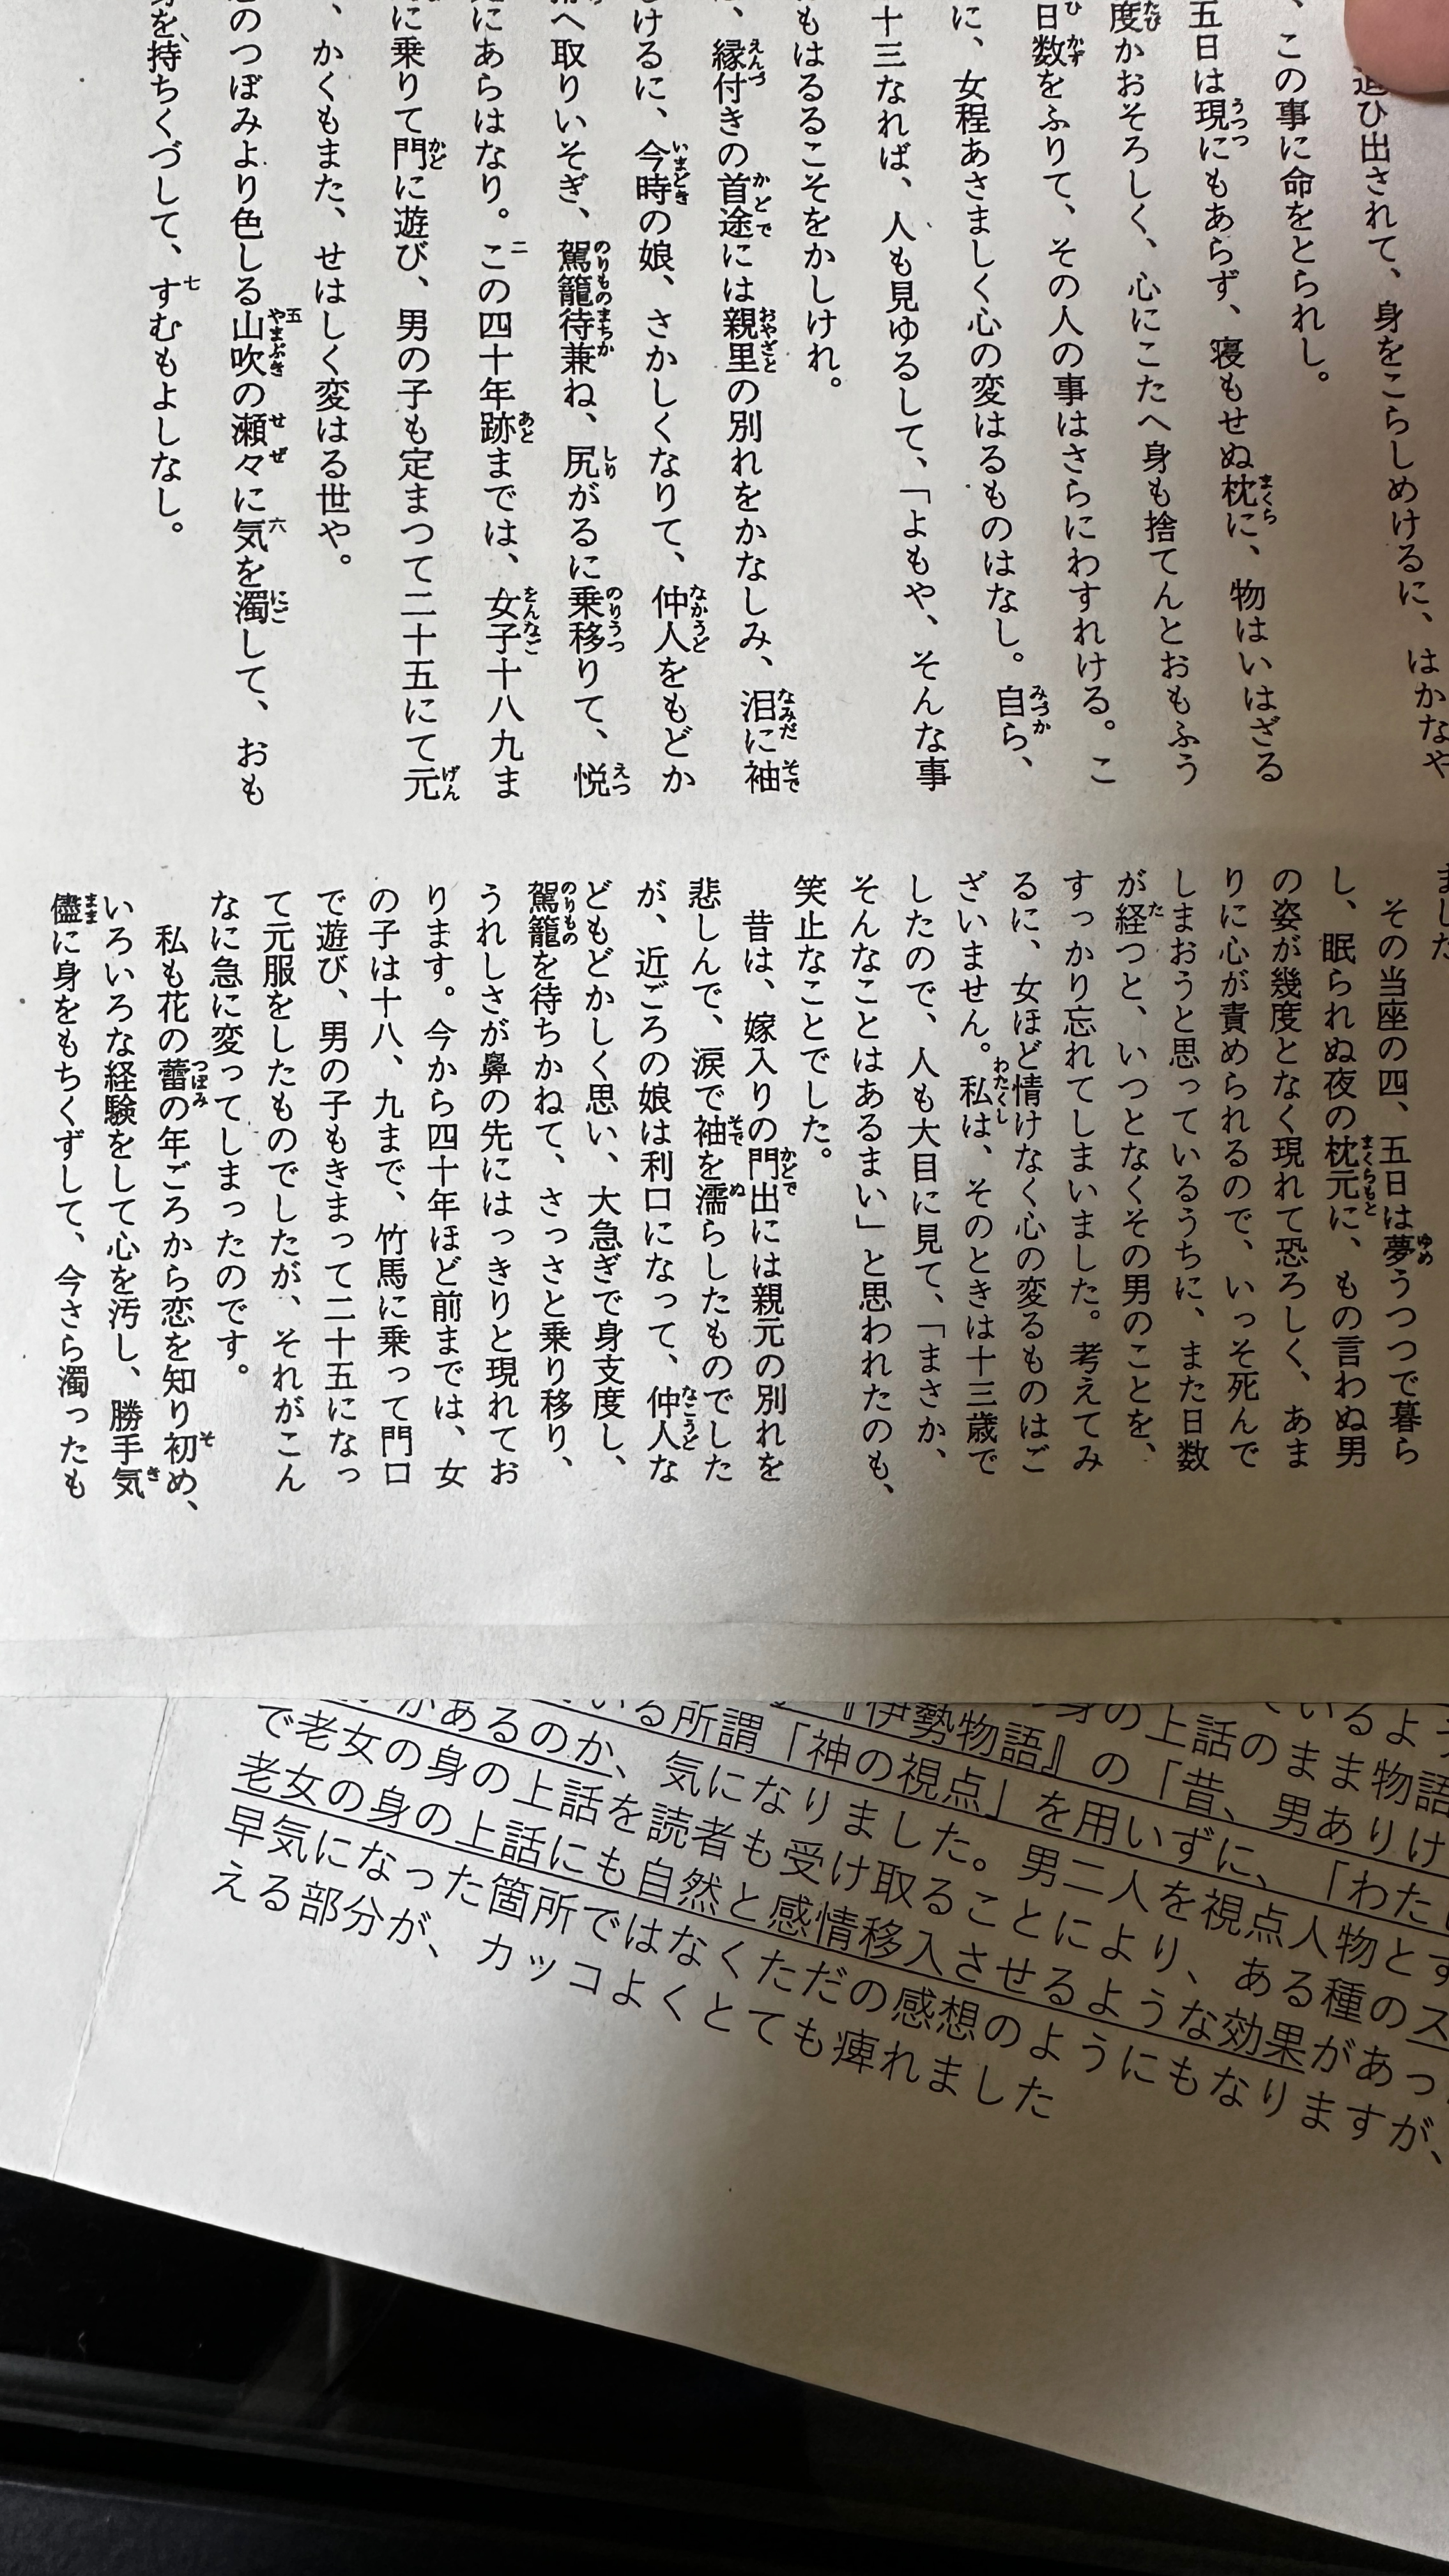 追ひ出されて、身をこらしめけるに、はかなや
、この事に命をとられし。
五日は現にもあらず、寝もせぬ枕に、物はいはざる
度かおそろしく、心にこたへ身も捨てんとおもふう
日数をふりて、その人の事はさらにわすれける。こ
に、女程あさましく心の変はるものはなし。自ら、
十三なれば、人も見ゆるして、「よもや、そんな事
もはるるこそをかしけれ。
、縁付きの首途には親里の別れをかなしみ、泪に袖
けるに、今時の娘、さかしくなりて、仲人をもどか
へ取りいそぎ、駕籠待兼ね、尻がるに乗移りて、悦
にあらはなり。この四十年跡までは、女子十八九ま
に乗りて門に遊び、男の子も定まつて二十五にて元
、かくもまた、せはしく変はる世や。
のつぼみより色しる山吹の瀬々に気を濁して、おも
を、持ちくづして、すむもよしなし。
ました
その当座の四、五日は夢うつつで暮ら
し、眠られぬ夜の枕元に、もの言わぬ男
の姿が幾度となく現れて恐ろしく、あま
りに心が責められるので、いっそ死んで
しまおうと思っているうちに、また日数
が経つと、いつとなくその男のことを、
すっかり忘れてしまいました。考えてみ
るに、女ほど情けなく心の変るものはご
ざいません。私は、そのときは十三歳で
したので、人も大目に見て、「まさか、
そんなことはあるまい」と思われたのも、
笑止なことでした。
昔は、嫁入りの門出には親元の別れを
悲しんで、涙で袖を濡らしたものでした
が、近ごろの娘は利口になって、仲人な
どもどかしく思い、大急ぎで身支度し、
駕籠を待ちかねて、さっさと乗り移り、
うれしさが鼻の先にはっきりと現れてお
ります。今から四十年ほど前までは、女
の子は十八、九まで、竹馬に乗って門口
で遊び、男の子もきまって二十五になっ
て元服をしたものでしたが、それがこん
なに急に変ってしまったのです。
私も花の蕾の年ごろから恋を知り初め、
いろいろな経験をして心を汚し、勝手気
儘に身をもちくずして、今さら濁ったも
ているよう
身の上話のまま物語
『伊勢物語』の「昔、男ありけ
いる所謂「神の視点」を用いずに、「わたし
があるのか、気になりました。男二人を視点人物とす
で老女の身の上話を読者も受け取ることにより、ある種のス
老女の身の上話にも自然と感情移入させるような効果があっ
早気になった箇所ではなくただの感想のようにもなりますが、
える部分が、カッコよくとても痺れました